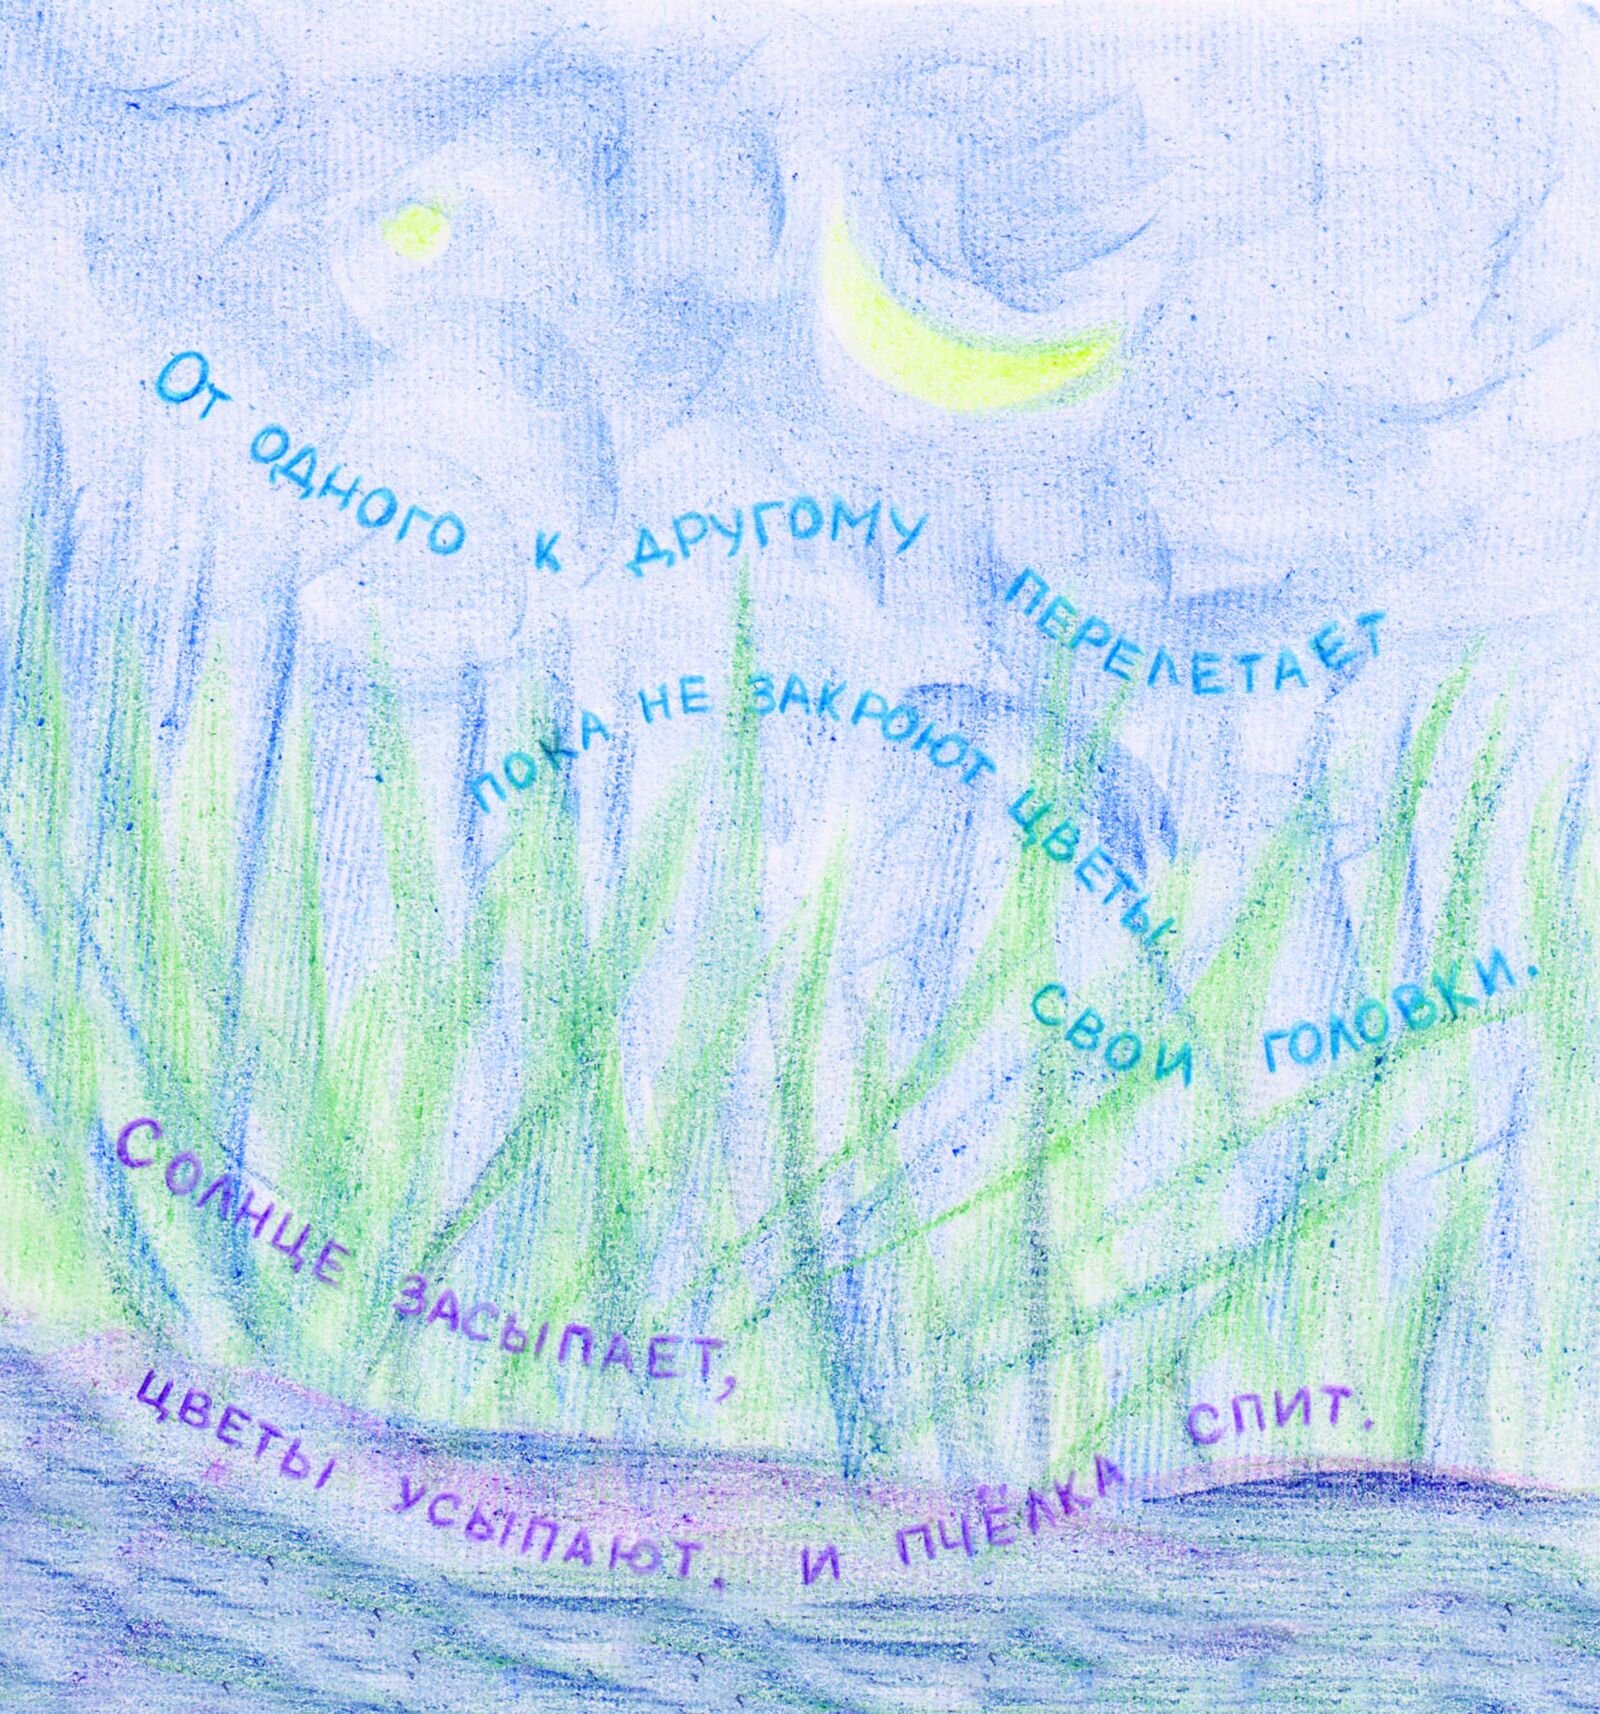 От одного к другому перелетает
пока не закроют цветы
свои головки.
Солнце засыпает,
цветы усыпают. и пчёлка спит.